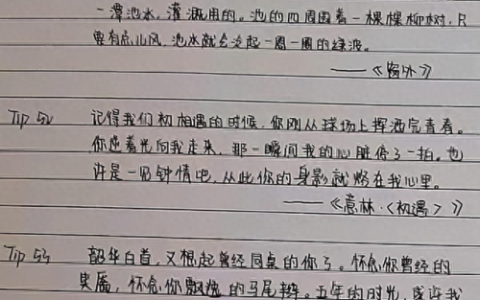 一潭池水，灌溉用的。池的四周围着一棵棵柳树，只
要有点儿风，池水就会泛起一圈一圈的绿波。
——《窗外》
Tip 52 记得我们初相遇的时候，你刚从球场上挥洒完青春。
你逆着光向我走来，那一瞬间我的心脏停了一拍。也
许是一见钟情吧，从此你的身影就烙在我心里。
——《意林·<初遇>》
Tip 53 韶华白首，又想起曾经同桌的你了。怀念你曾经的
笑靥，怀念你飘逸的马尾辫。五年的时光，或许我